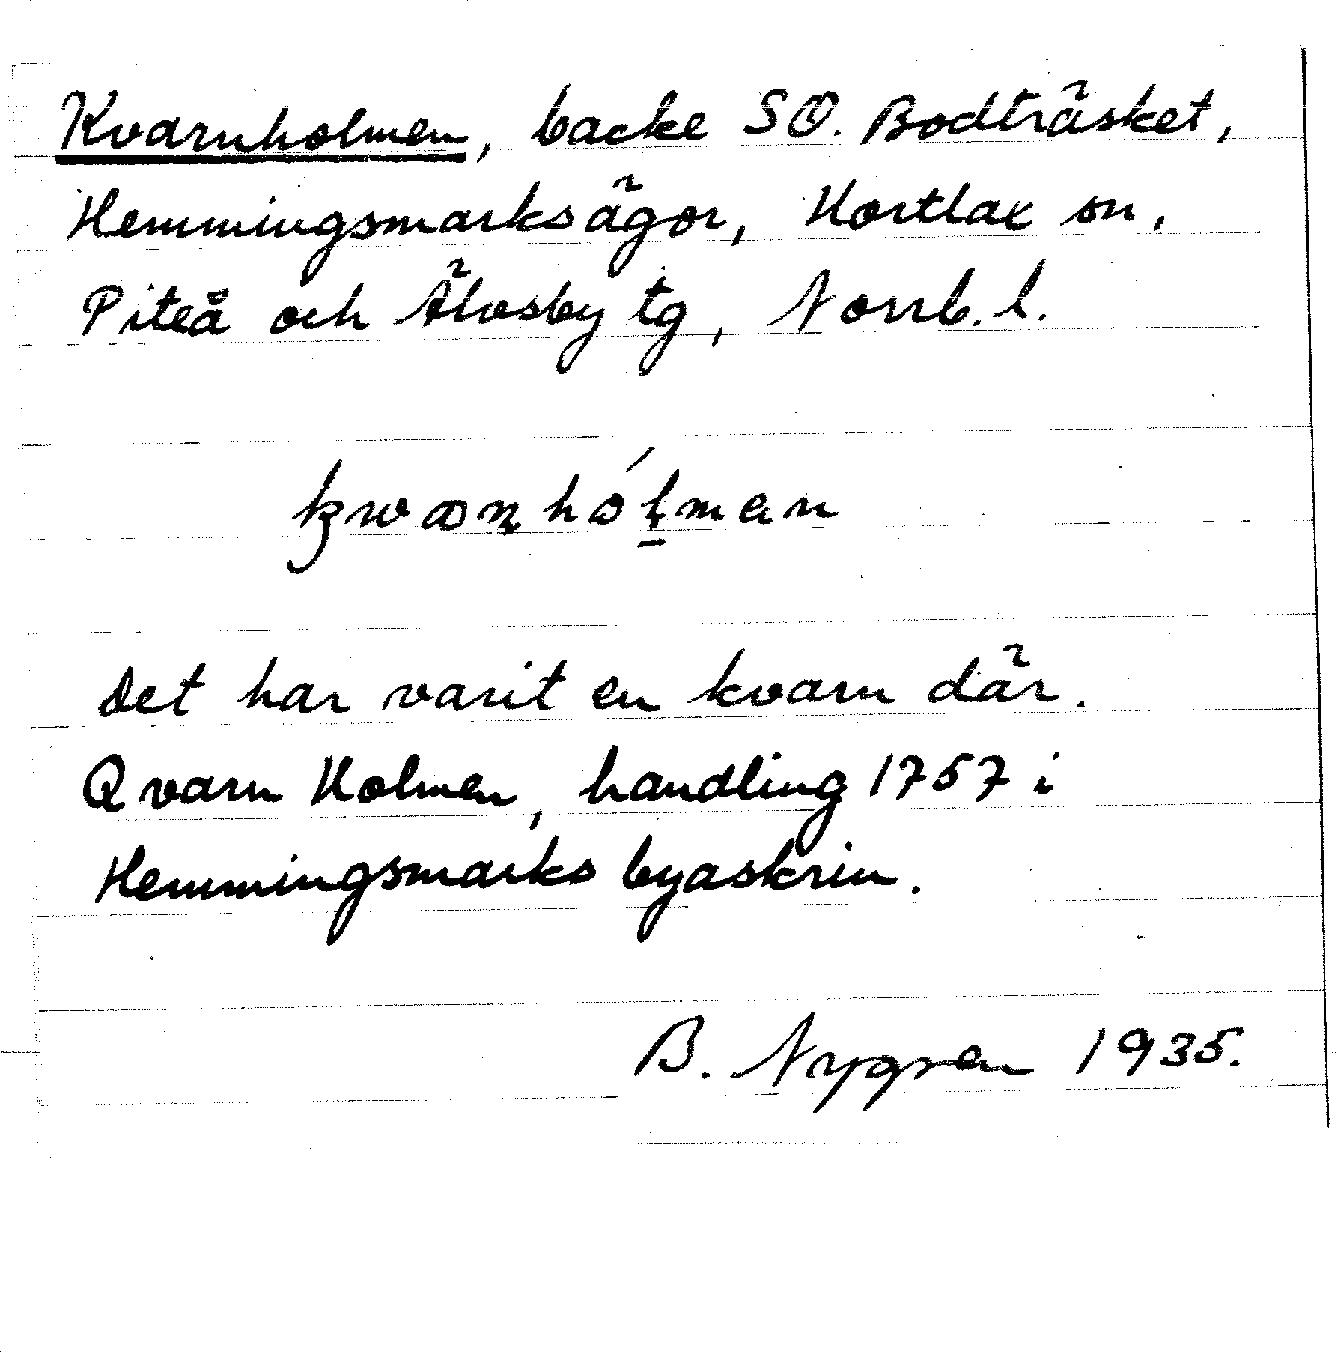 Kvarnholmen, backe SO. Bodträsket,
Hemmingsmarksägor, Hortlax sn,
Piteå och Älvsby tg, Norrb. l.
Det har varit en kvarn där.
Qvarn Holmen, handling 1757 i
Hemmingsmarks byaskrin.
B. Nygren 1935.